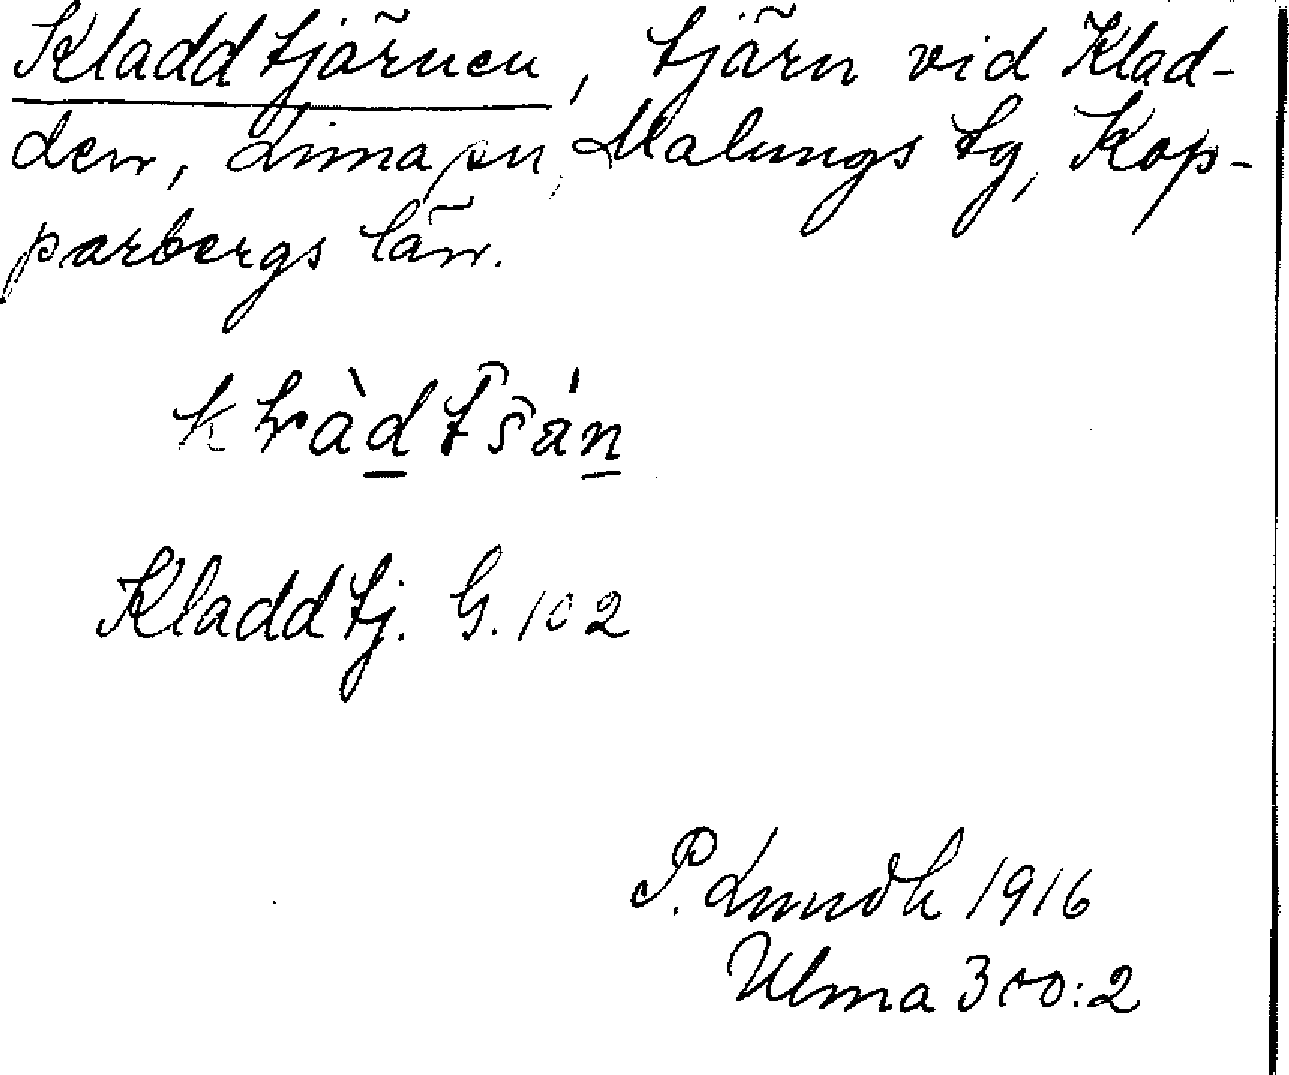 Kladdtjärnen, tjärn vid Klad-
den, Lima sn, Malungs tg, Kop-
parbergs län.
Kladdtj. G. 102
P. Lundh 1916
Ulma 300:2